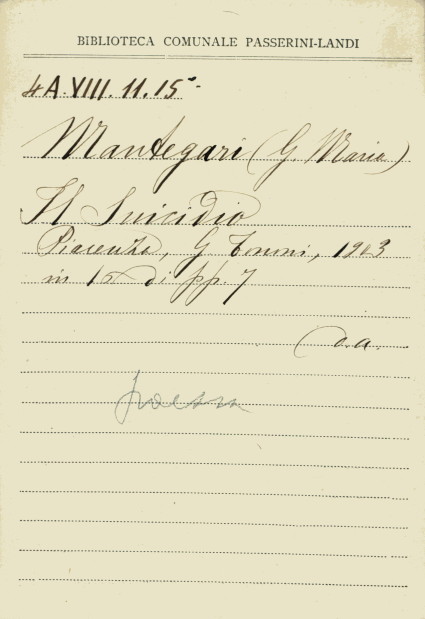 BIBLIOTECA COMUNALE PASSERINI-LANDI
4A.VIII.11.15
Mantegari (G. Maria)
Il Suicidio
Piacenza, G. Tononi, 1903
in 16 di pp. 7
d.a.